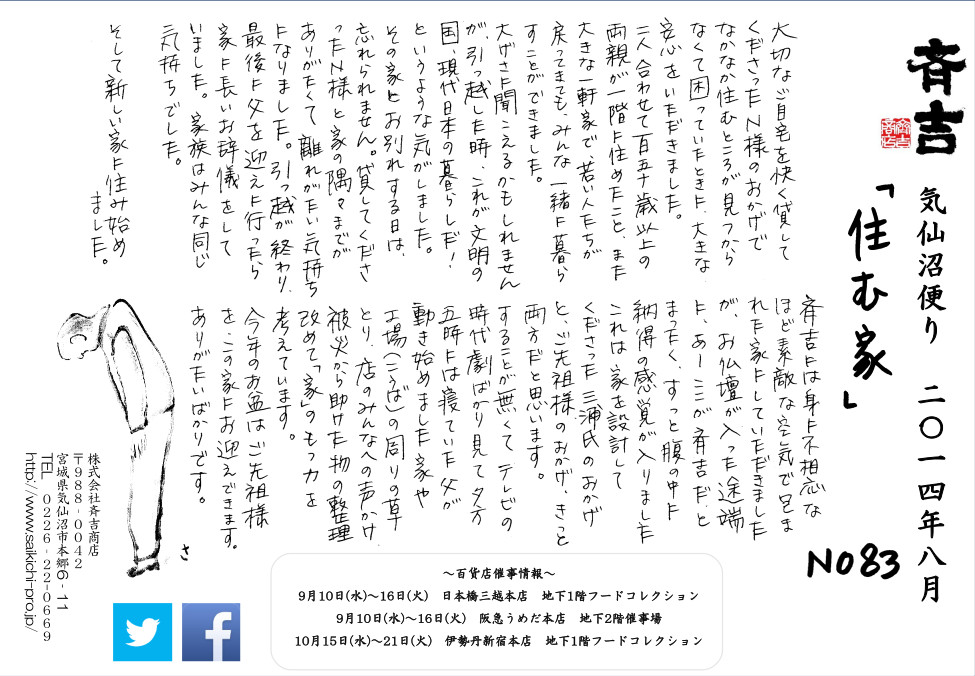 斉吉
気仙沼便り　二〇一四年八月
「住む家」
No83
大切なご自宅を快く貸して
くださったN様のおかげで
なかなか住むところが見つから
なくて困っていたときに、大きな
安心をいただきました。
二人合わせて百五十歳以上の
両親が一階に住めたこと、また
大きな一軒家で、若い人たちが
戻ってきても、みんな一緒に暮ら
すことができました。
大げさに聞こえるかもしれません
が、引っ越した時、これが文明の
国、現代日本の暮らしだ！
というような気がしました。
その家とお別れする日は、
忘れられません。貸してくださ
ったN様と家の隅々までが
ありがたくて、離れがたい気持ち
になりました。引っ越が終わり、
最後に父を迎えに行ったら
家に長いお辞儀をして
いました。家族はみんな同じ
気持ちでした。
そして新しい家に住み始め
ました。
斉吉には身に不相応な
ほど素敵な空気で包ま
れた家にしていただきました
が、お仏壇が入った途端
に、あーここが斉吉だ、と
まったく、すっと腹の中に
納得の感覚が入りました
これは家を設計して
くださった三浦氏のおかげ
と、ご先祖様のおかげ、きっと
両方だと思います。
することが無くてテレビの
時代劇ばかり見て夕方
五時には寝ていた父が
動き始めました家や
工場（こうば）の周りの草
とり、店のみんなへの声かけ、
被災から助けた物の整理
改めて「家」のもつ力を
考えています。
今年のお盆はご先祖様
を、この家にお迎えできます。
ありがたいばかりです。
さ
株式会社斉吉商店
〒988-0042
宮城県気仙沼市本郷6-11
TEL　0226-22-0669
http://www.saikichi-pro.jp/
～百貨店催事情報～
9月10日(水)～16日(火)　日本橋三越本店　地下1階フードコレクション
9月10日(水)～16日(火)　阪急うめだ本店　地下2階催事場
10月15日(水)～21日(火)　伊勢丹新宿本店　地下1階フードコレクション